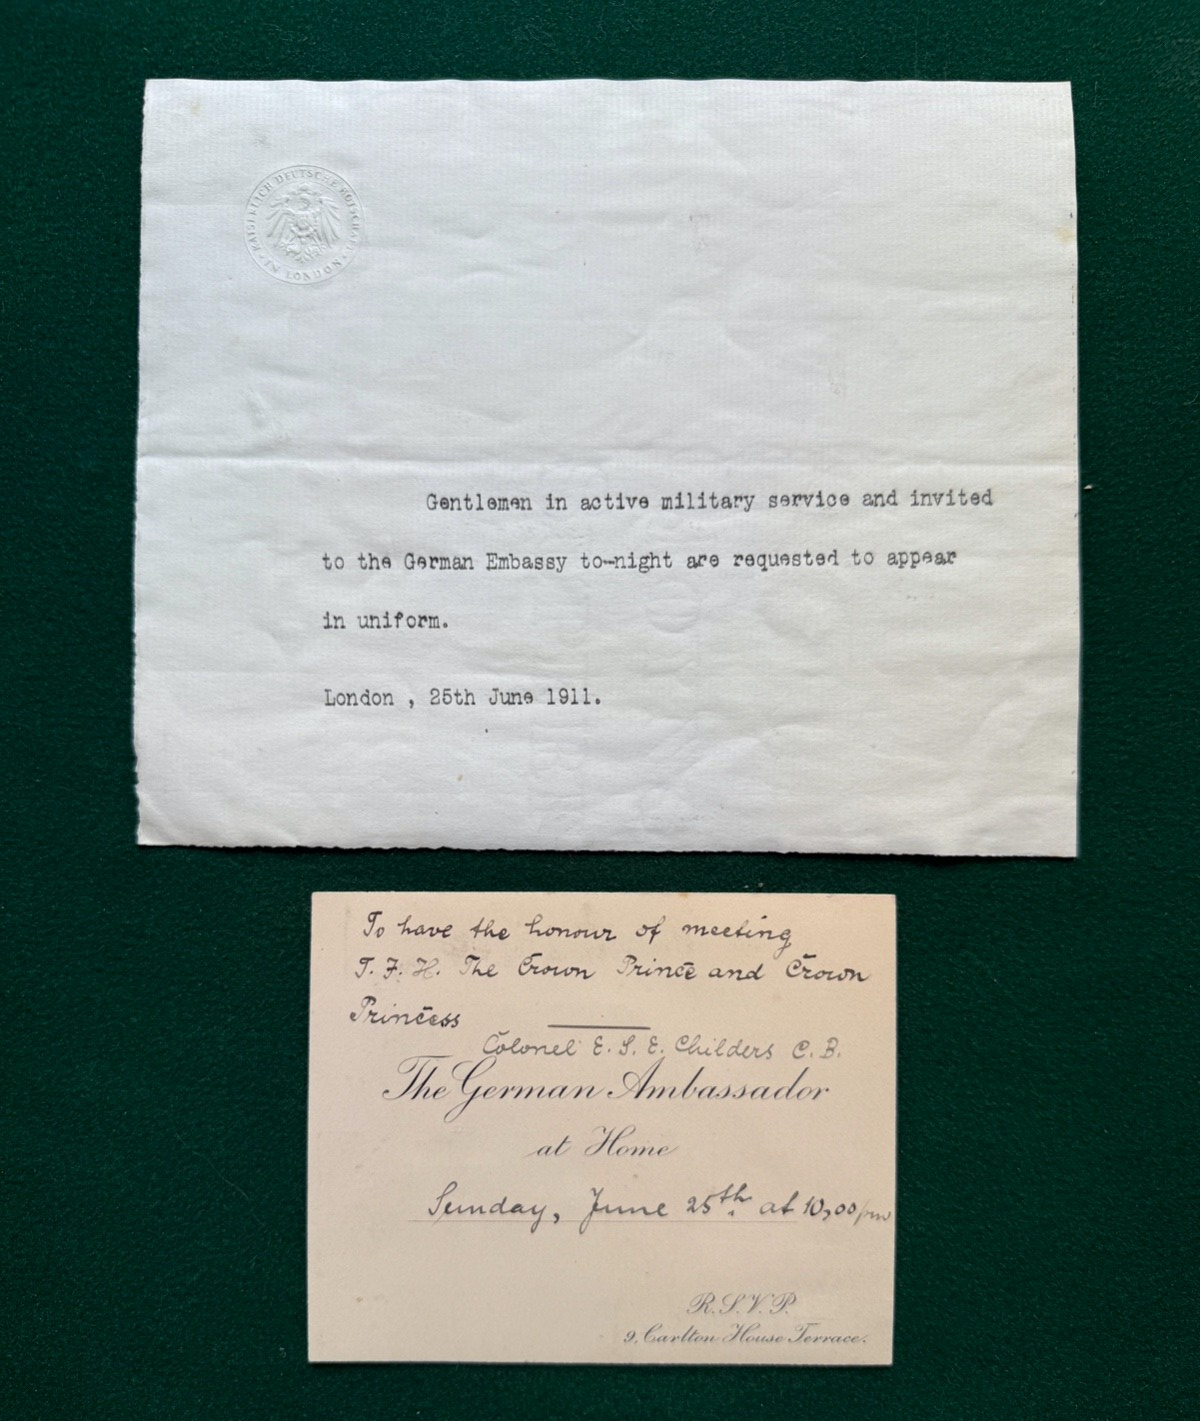 KAISERLICH DEUTSCHE BOTSCHAFT
IN LONDON
Gentlemen in active military service and invited
to the German Embassy to-night are requested to appear
in uniform.
London , 25th June 1911.
To have the honour of meeting
T. F. H. The Crown Prince and Crown
Princess
Colonel E. S. E. Childers C. B.
The German Ambassador
at Home
Sunday, June 25th. at 10,00 pm
R.S.V.P.
9, Carlton House Terrace.